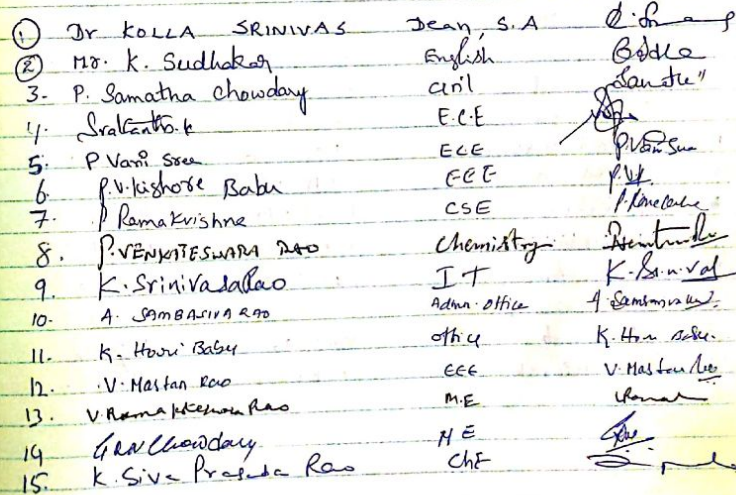 1 Dr KOLLA SRINIVAS Dean, S.A
2 Mr. K. Sudhakar English
3. P. Samatha Chowdary Civil
4. Srikanth.k E.C.E
5. P Vani Sree ECE
6. P.V. Kishore Babu EEE P.V.K.
7. P Ramakrishna CSE
8. P. VENKATESWARA RAO Chemistry
9. K. SrinivasaRao IT K. Srinivas
10. A. SAMBASIVA RAO Admn. office
11. K. Hari Babu office K. Hari Babu.
12. V. Mastan Rao EEE V. Mastan Rao
13. V. Rama Rao M.E
14 GRN Chowdary ME
15. K. Siva Prasada Rao ChE